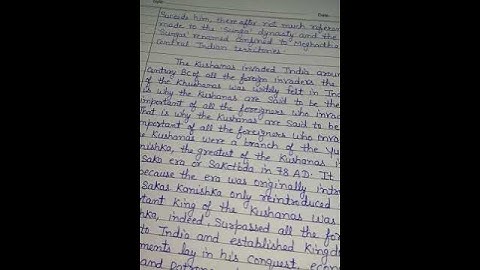 Suceeds him, thereafter not much referen
made to the 'Sunga' dynasty and the
Sungas remained confined to Meghadha
central Indian territories.
The Kushanas invaded India aroun
century BC of all the foreign invaders the
of the Khushanas was widely felt in Ind
is why the Kushanas are said to be the
important of all the foreigners who invad
That is why the Kushanas are said to be
important of all the foreigners who inva
e Kushanas were a branch of the Yu
nishka, the greatest of the Kushanas i
Saka era or Sakabda in 78 AD. It
because the era was originally intro
Sakas Kanishka only reintroduced
tant king of the Kushanas was
hka, indeed, Surpassed all the for
to India and established Kingd
ments lay in his Conquest, econ
and patron